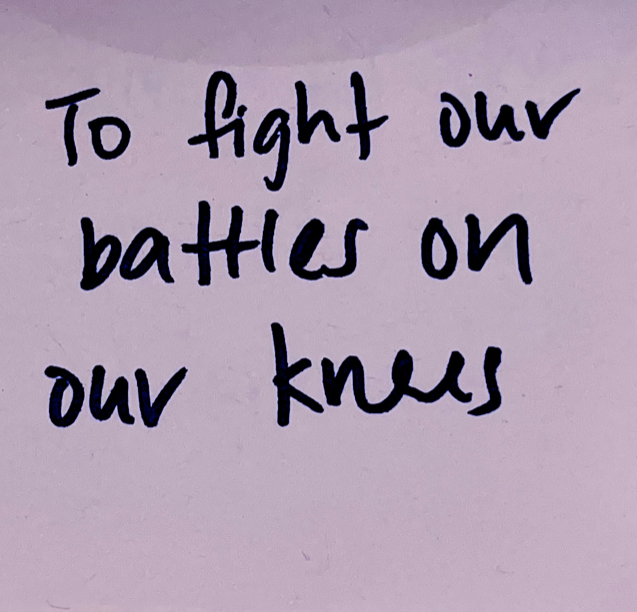 To fight our
battles on
our knees